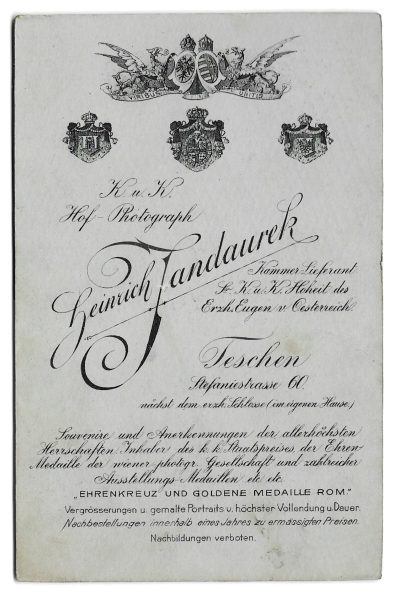 K. u. K.
Hof-Photograph
Heinrich Jandaurek
Kammer Lieferant
Sr. K. u. K. Hoheit des
Erzh. Eugen v. Oesterreich.
Teschen
Stefaniestrasse 60.
nächst dem erzh. Schlosse (im eigenen Hause.)
Souvenire und Anerkennungen der allerhöchsten
Herrschaften, Inhaber des k. k. Staatspreises, der Ehren-
Medaille der wiener photogr. Gesellschaft und zahlreicher
Ausstellungs-Medaillen etc. etc.
„EHRENKREUZ UND GOLDENE MEDAILLE ROM.“
Vergrösserungen u. gemalte Portraits v. höchster Vollendung u. Dauer.
Nachbestellungen innerhalb eines Jahres zu ermässigten Preisen.
Nachbildungen verboten.